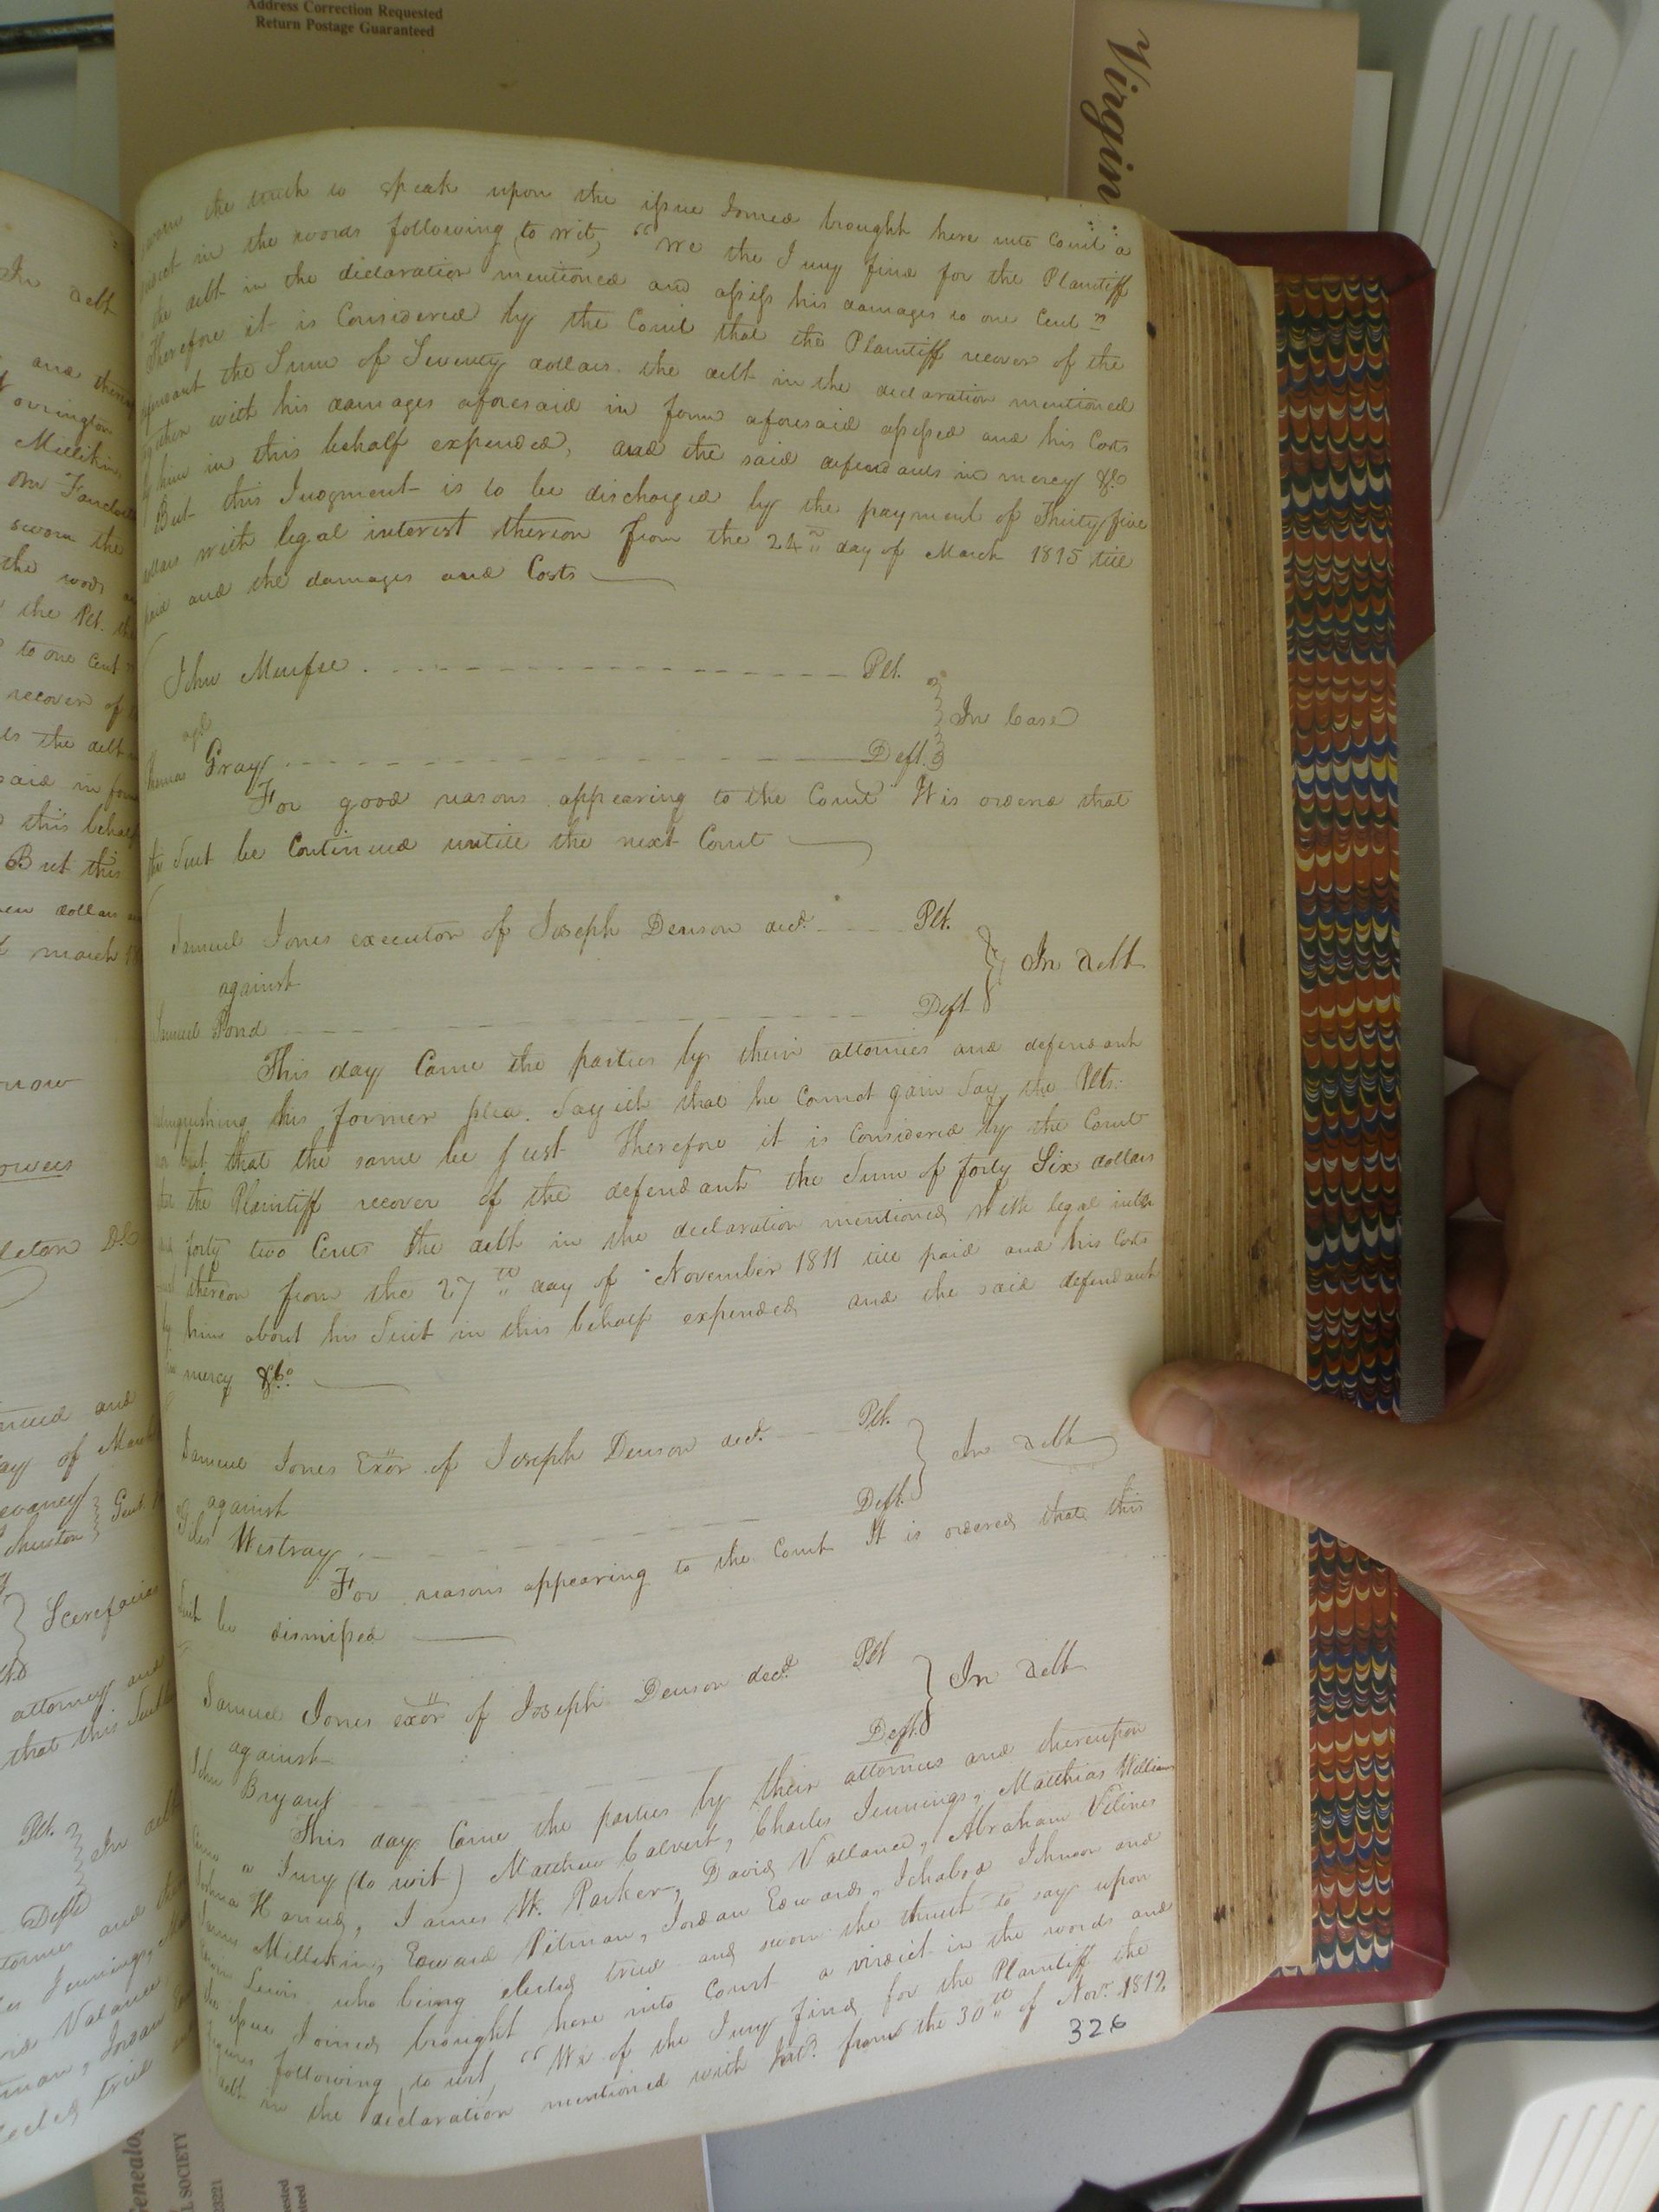 Address Correction Requested
Return Postage Guaranteed
Virgin
sworn the truth to speak upon the issue Joined brought here into Court a
in the words following (to wit, "We the Jury find for the Plaintiff
the debt in the declaration mentioned and assess his damages to one Cent"
Therefore it is Considered by the Court that the Plaintiff recover of the
defendant the Sum of Seventy dollars the debt in the declaration mentioned
together with his damages aforesaid in form aforesaid assessed and his Costs
by him in this behalf expended, and the said defendants in mercy &c
But this Judgment is to be discharged by the payment of Thirty five
dollars with legal interest thereon from the 24th day of March 1815 till
paid and the damages and Costs
John Plt.
agt In Case
Thomas Gray Deft.
For good reasons appearing to the Court It is orderd that
the Suit be Continued untill the next Court
Samuel Jones executor of Joseph Denson decd. Plt.
against In debt
Samuel Pond Deft
This day Came the parties by their attornies and defendant
his former plea. Sayeth that he Cannot gain Say the Plts.
but that the same be Just Therefore it is Considered by the Court
that the Plaintiff recover of the defendant the Sum of forty Six dollars
and forty two Cents the debt in the declaration mentioned with legal inter
thereon from the 27th day of November 1811 till paid and his Costs
by him about his Suit in this behalf expended and the said defendant
in mercy &c.
Samuel Jones Exor of Joseph Denson decd. Plt.
against In debt
Giles Westray Deft.
For reasons appearing to the Court It is ordered that this
Suit be dismissed
Samuel Jones exor of Joseph Denson decd. Plt
against In debt
John Bryant Deft.
This day Came the parties by their attornies and thereupon
Came a Jury (to wit) Matthew Calvert, Charles Jennings, Matthias William
Joshua James W. Parker, David Vallance, Abraham Vilines
James Millikin, Edward Pitman, Jordan Edwards, Ichabod Johnson and
Lewis who being elected tried and sworn the thruth to say upon
the issue Joined brought here into Court a virdict in the words and
figures following, to wit, "We of the Jury find for the Plaintiff the
debt in the declaration mentioned with Int. from the 30th of Nov. 1812
326
In debt
and
Millikin
sworn the
the words
the Plt.
to one Cent
recover of
the debt
said in
this behalf
But this
dollars
march
now
and
day of
Scirefacias
attorney and
that this Suit
Plt.
In debt
Deft
Jennings,
Valance
Jordan
tried
Genealo
L SOCIETY
23221